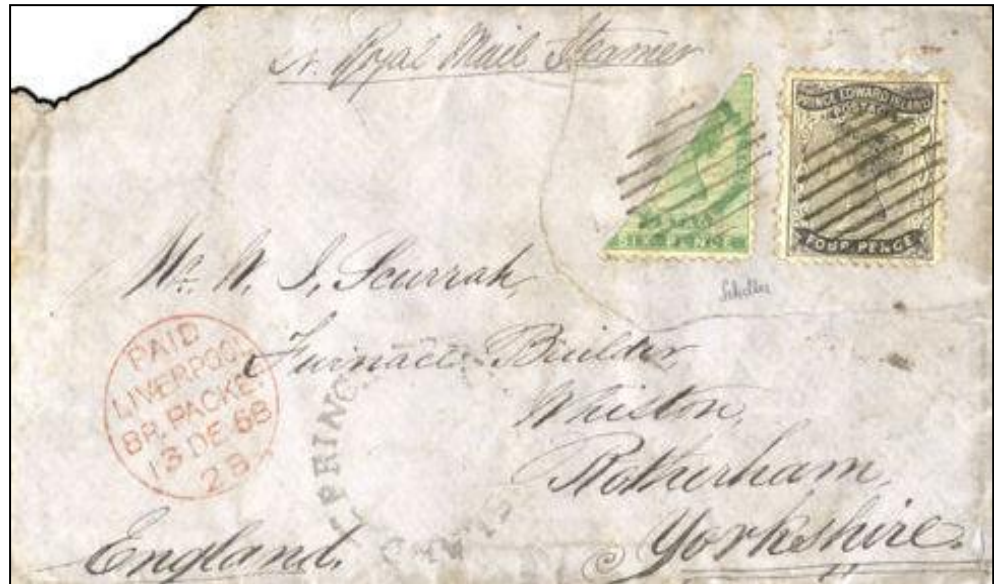 Royal Mail Steamer
PRINCE EDWARD ISLAND
POSTAGE
FOUR PENCE
SIX PENCE
Mr. W. J. Scurrah,
Furnace Builder,
Whiston,
Rotherham,
Yorkshire.
England.
PAID
LIVERPOOL
BR. PACKET
13 DE 68
2B
PRINC